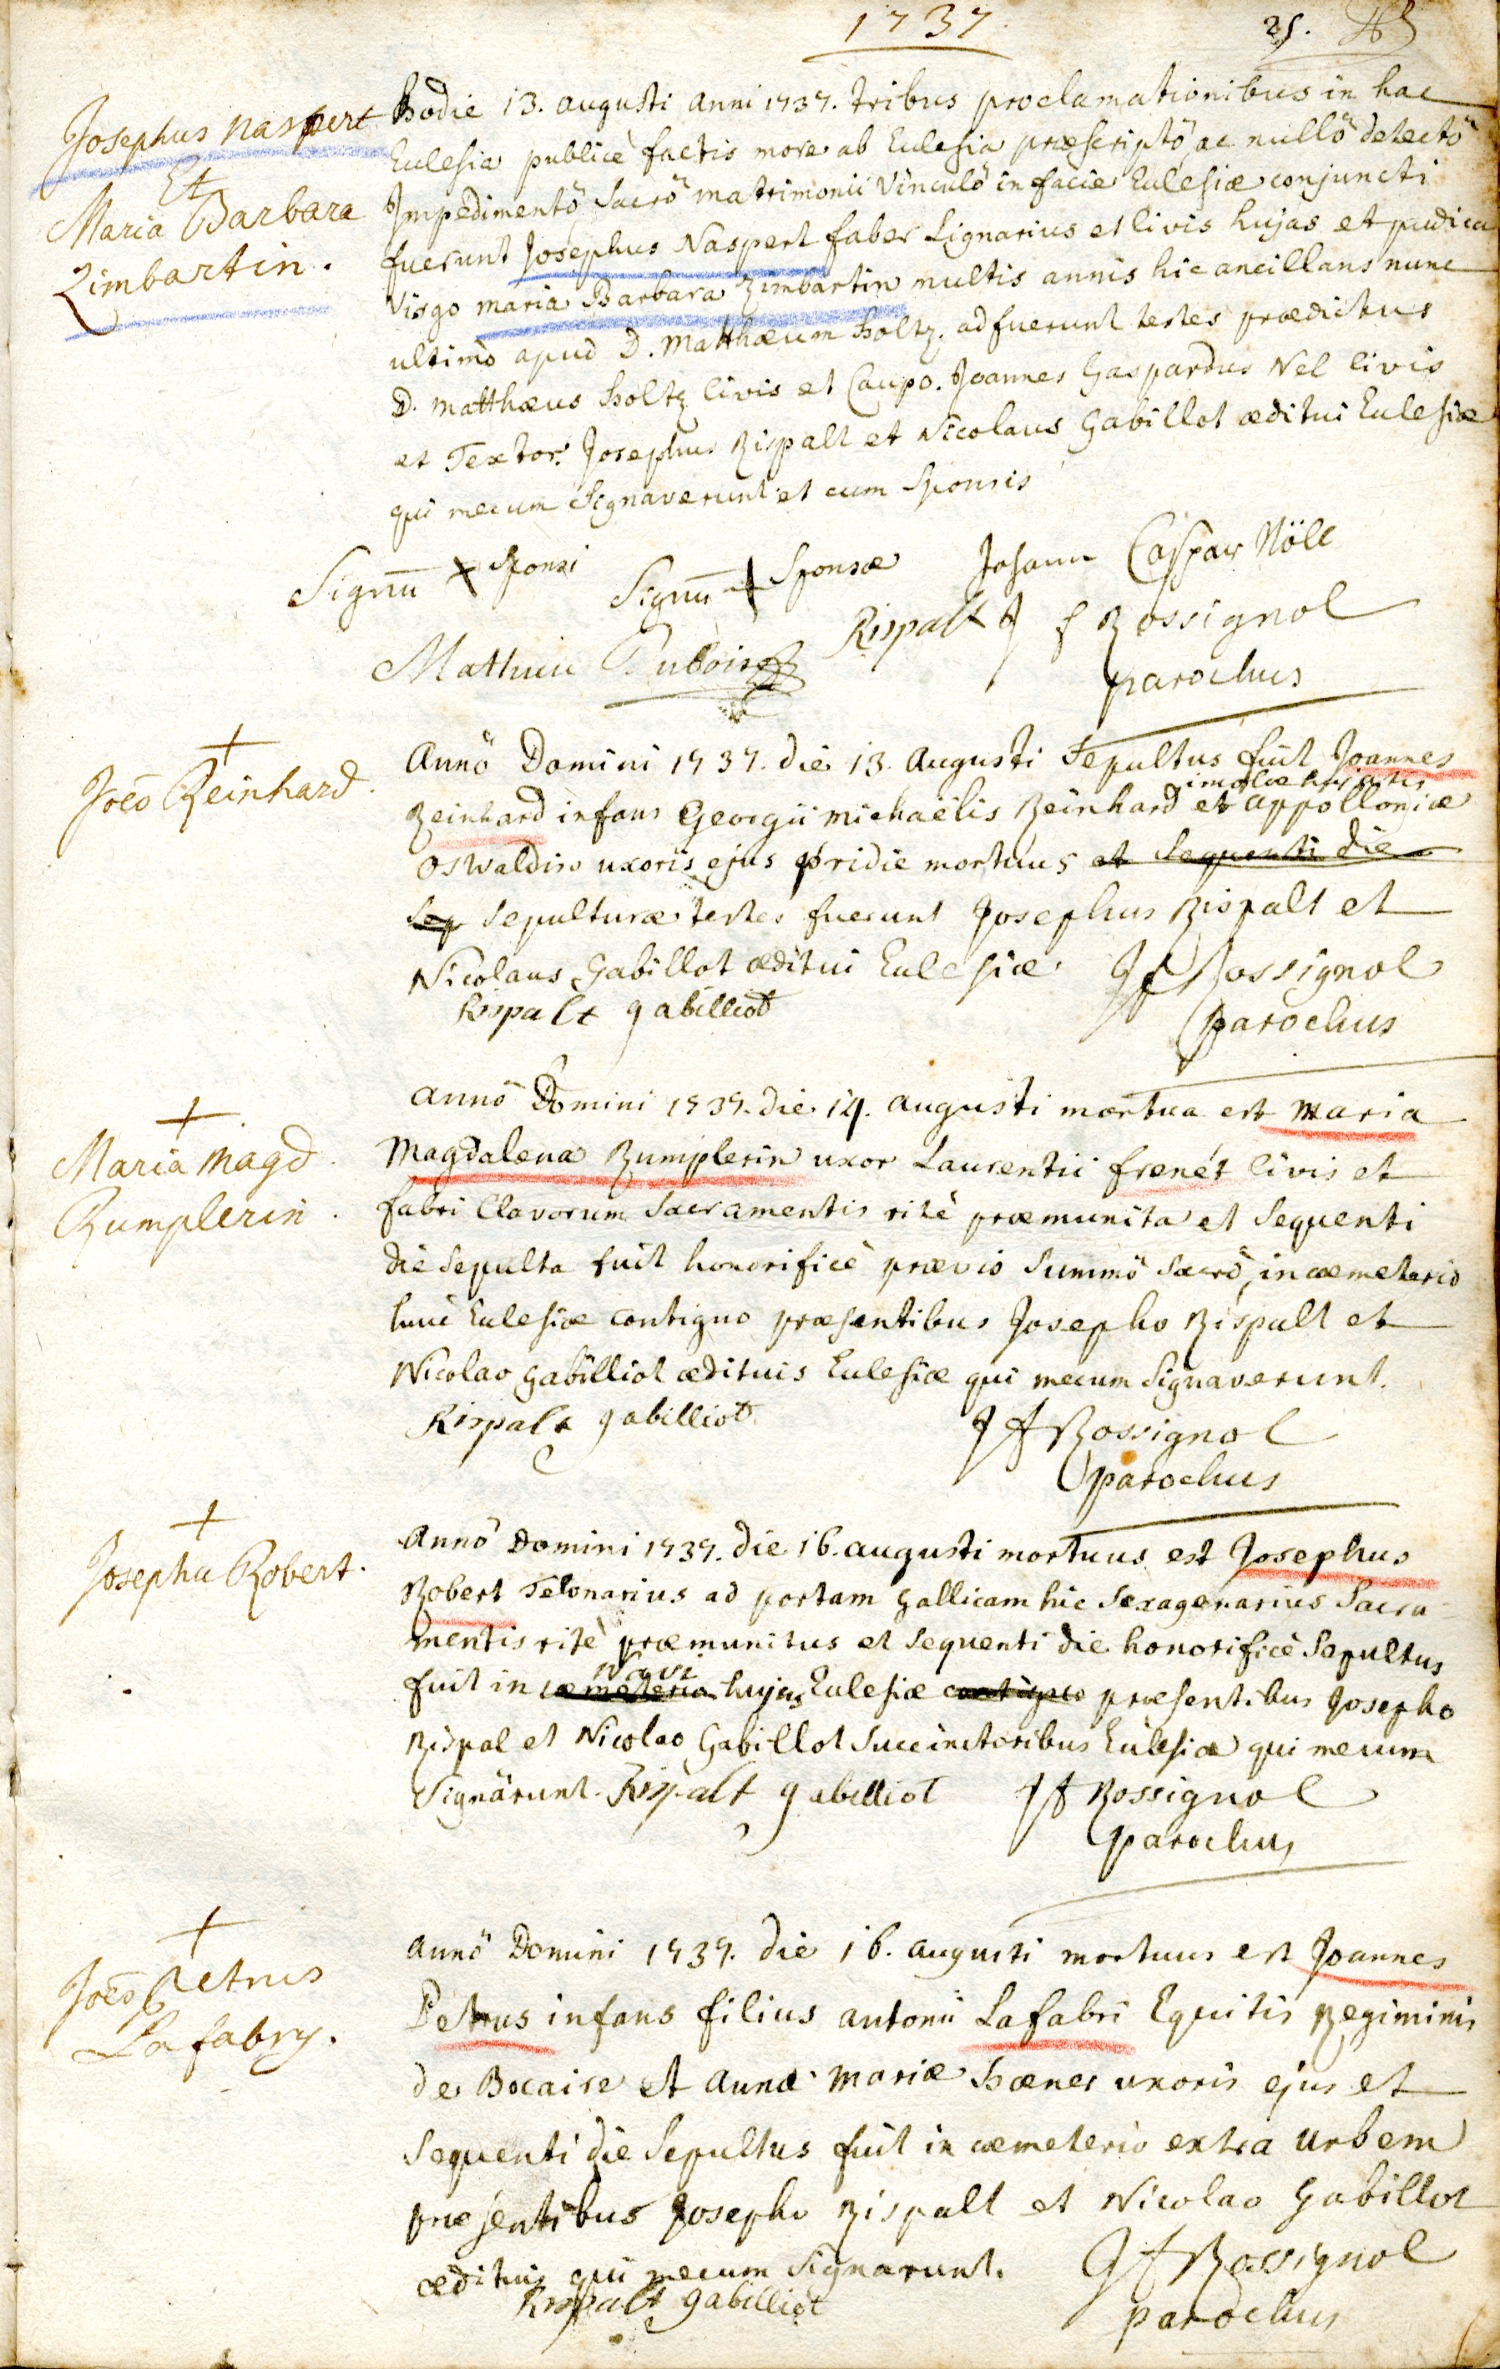 1737
25.
Josephus naspert
Et
Maria Barbara
Zimbartin.
Hodie 13. augusti anni 1737. tribus proclamationibus in hac
Eclesia publicè factis more ab Eclesia præscriptô ac nullô detectô
Impedimentô Sacrô matrimonii Vinculô in facie Eclesiæ conjuncti
fuerunt Josephus Naspert faber Lignarius et Civis hujas et pudica
Virgo maria Barbara Zimbartin multis annis hic ancillans nunc
ultimô apud D. Matthæum Holtz. adfuerunt testes prædictus
D. Matthæus Holtz Civis et Caupo. Joannes Gaspardus Nel Civis
et Textor. Josephus Rispalt et Nicolaus Gabillot æditui Eclesiæ
qui mecum Signaverunt et cum Sponsis
Signū + Sponsi Signū + Sponsæ Johann Caspar Nöll
Mathieu Duboirz Rispalt J f Rossignol
parochus
+
Joēs Reinhard.
Annô Domini 1737. die 13. Augusti Sepultus fuit Joannes
Reinhard infans Georgii michaëlis Reinhard et appolloniæ
Oswaldin uxoris ejus pridie mortuus et Sequenti die
Sep Sepulturæ testes fuerunt Josephus Rispalt et
Nicolaus Gabillot æditui Eclesiæ J f Rossignol
Rispalt gabilliot parochus
+
Maria Magd
Rumplerin.
annô Domini 1737. die 14. augusti mortua est Maria
Magdalena Rumplerin uxor Laurentii frenét Civis et
fabri Clavorum Sacramentis ritè præmunita et Sequenti
die Sepulta fuit honorificè prævio Summô Sacrô, in cæmeterio
huic Eclesiæ contiguo præsentibus Josepho Rispalt et
Nicolao Gabilliot ædituis Eclesiæ qui mecum Signaverunt.
Rispalt gabilliot J f Rossignol
parochus
+
Josephu Robert.
Annô Domini 1737. die 16. augusti mortuus est Josephus
Robert Telonarius ad portam Gallicam hic Sexagenarius Sacra-
mentis ritè præmunitus et Sequenti die honorificè Sepultus
navi
fuit in cæmeterio hujus Eclesiæ contiguo præsentibus Josepho
Rispal et Nicolao Gabillot Succinctoribus Eclesiæ qui mecum
Signârunt. Rispalt gabilliot J f Rossignol
parochus
+
Joēs Petrus
Lafabry.
annô Domini 1737. die 16. augusti mortuus est Joannes
Petrus infans filius antonii Lafabri Equitis Regiminis
de Bocaire et Annæ Mariæ Hæner uxoris ejus et
Sequenti die Sepultus fuit in cæmeterio extra Urbem
præsentibus Josepho Rispalt et Nicolao Gabillot
ædituis qui mecum Signarunt. J f Rossignol
Rispalt gabilliot parochus